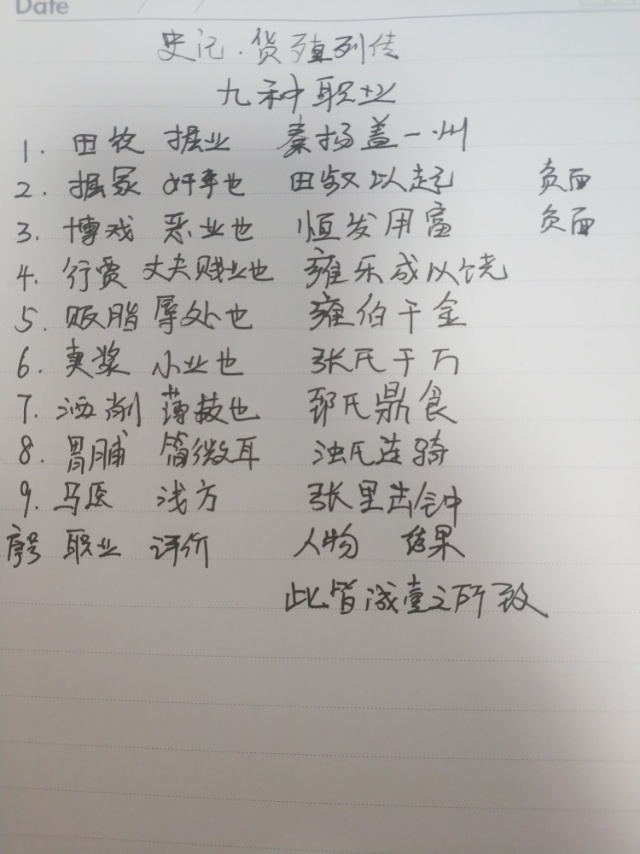 Date
史记·货殖列传
九种职业
1. 田牧 掘业 秦扬盖一州
2. 掘冢 奸事也 田叔以起 负面
3. 博戏 恶业也 恒发用富 负面
4. 行贾 丈夫贱业也 雍乐成以饶
5. 贩脂 辱处也 雍伯千金
6. 卖浆 小业也 张氏千万
7. 洒削 薄技也 郅氏鼎食
8. 胃脯 简微耳 浊氏连骑
9. 马医 浅方 张里击钟
序号 职业 评价 人物 结果
此皆诚壹之所致